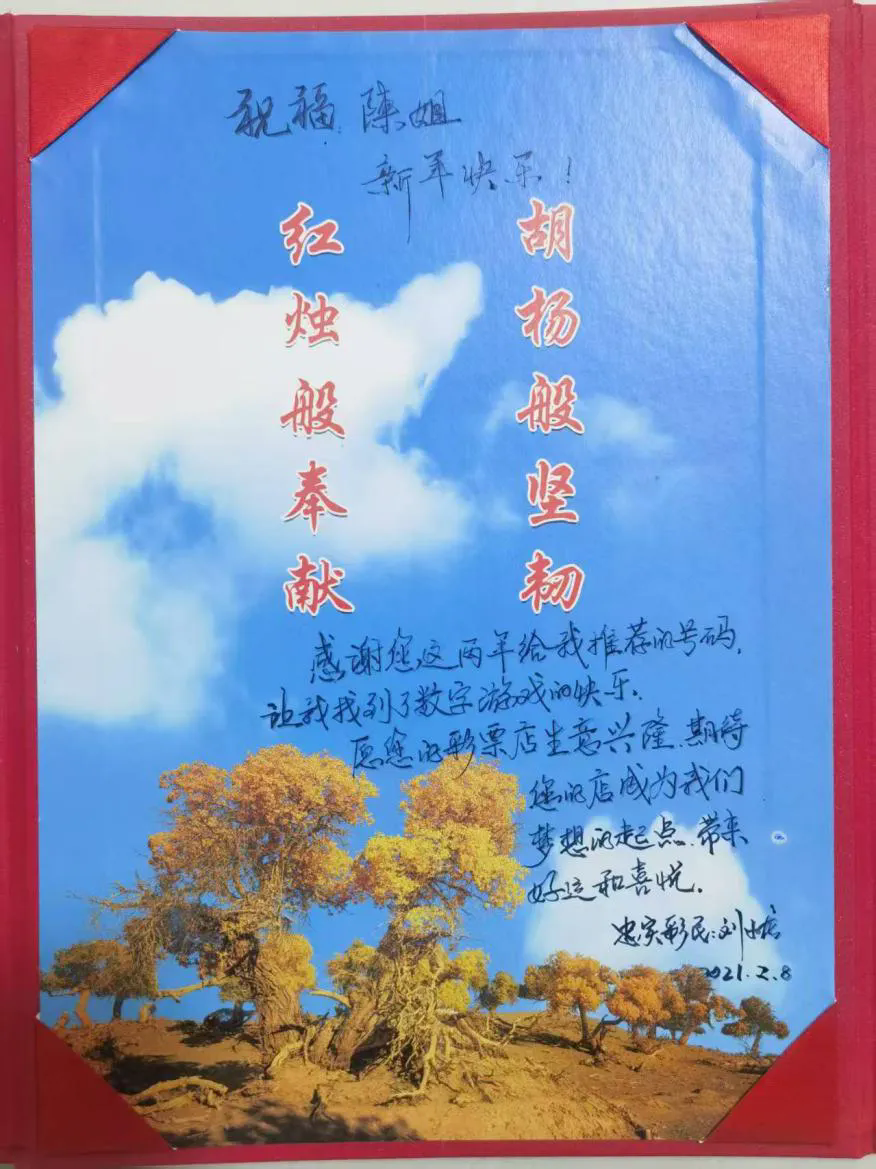 祝福陈姐
新年快乐！
胡杨般坚韧
红烛般奉献
感谢您这两年给我推荐的号码，
让我找到了数字游戏的快乐。
愿您的彩票店生意兴隆，期待
您的店成为我们
梦想的起点，带来
好运和喜悦。
忠实彩民：刘
2021.2.8